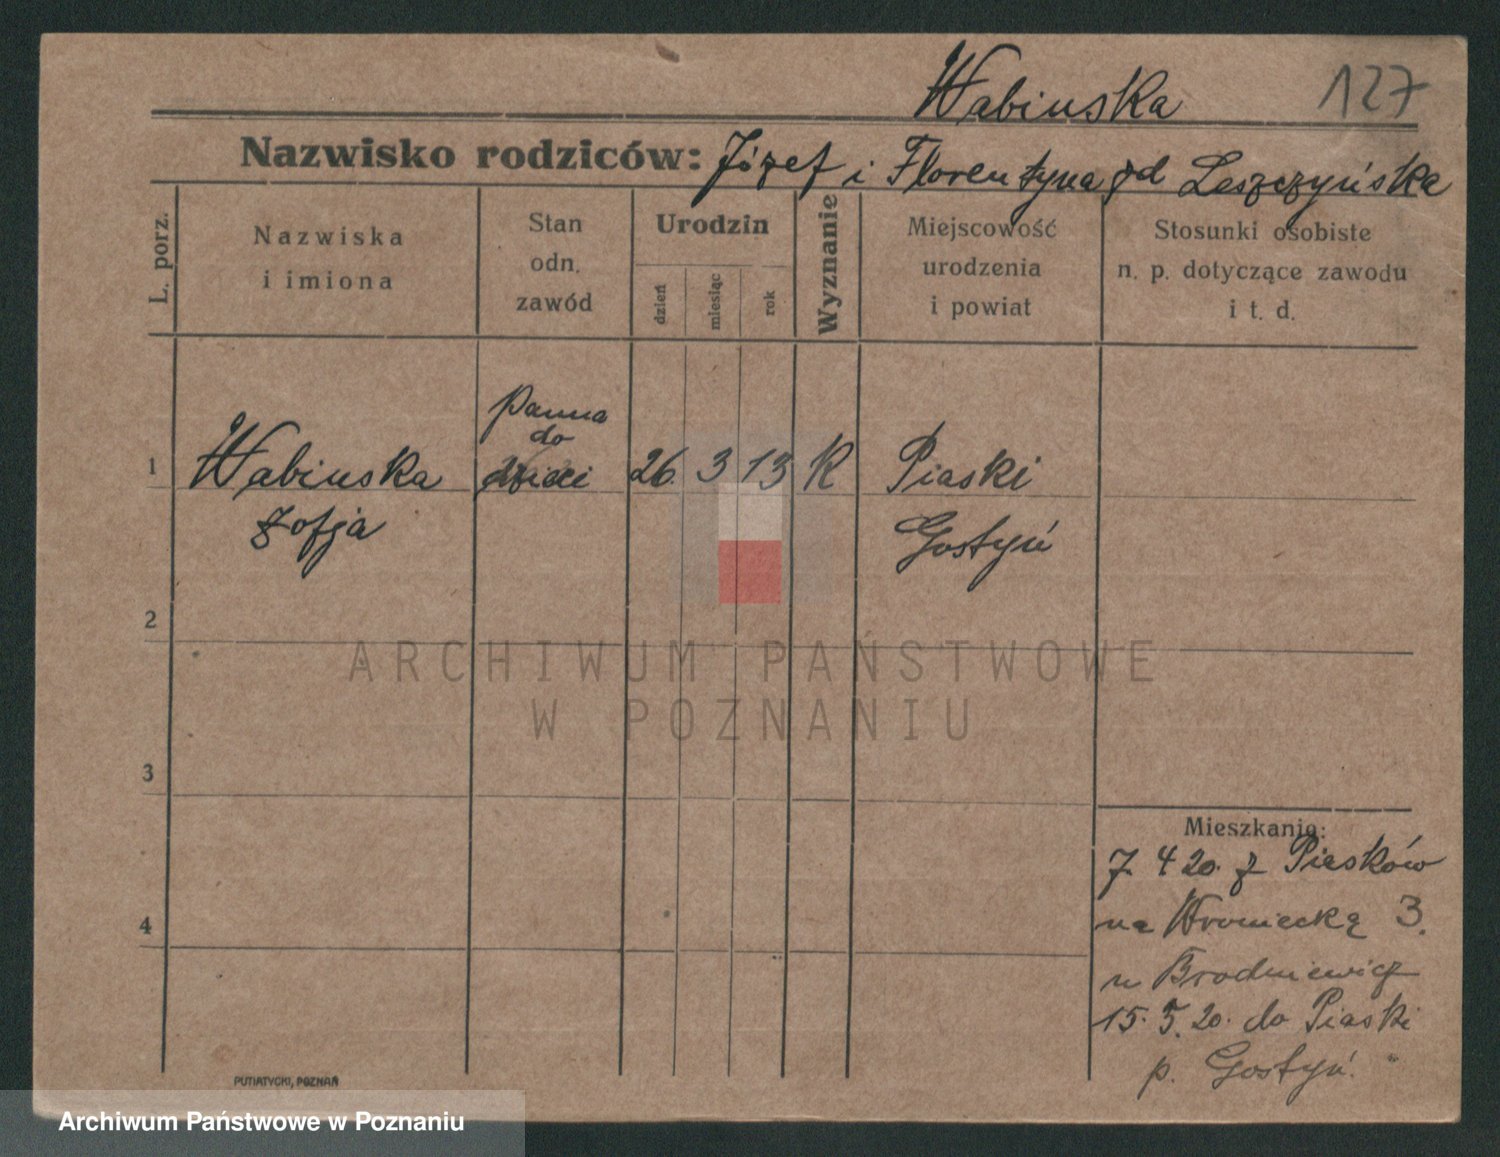 Wabinska 127
Nazwisko rodziców: Józef i Florentyna zd Leszczyńska
L. porz.
Nazwiska
i imiona
Stan
odn.
zawód
Urodzin
dzień
miesiąc
rok
Wyznanie
Miejscowość
urodzenia
i powiat
Stosunki osobiste
n. p. dotyczące zawodu
i t. d.
1 Wabinska panna do dzieci 26. 3 13 K Piaski
Zofja Gostyń
2
ARCHIWUM PAŃSTWOWE
W POZNANIU
3
4
Mieszkania:
7. 4 20. z Piasków
na Wroniecką 3.
u Brodniewicz
15. 5. 20. do Piaski
p. Gostyń.
PUTIATYCKI, POZNAŃ
Archiwum Państwowe w Poznaniu